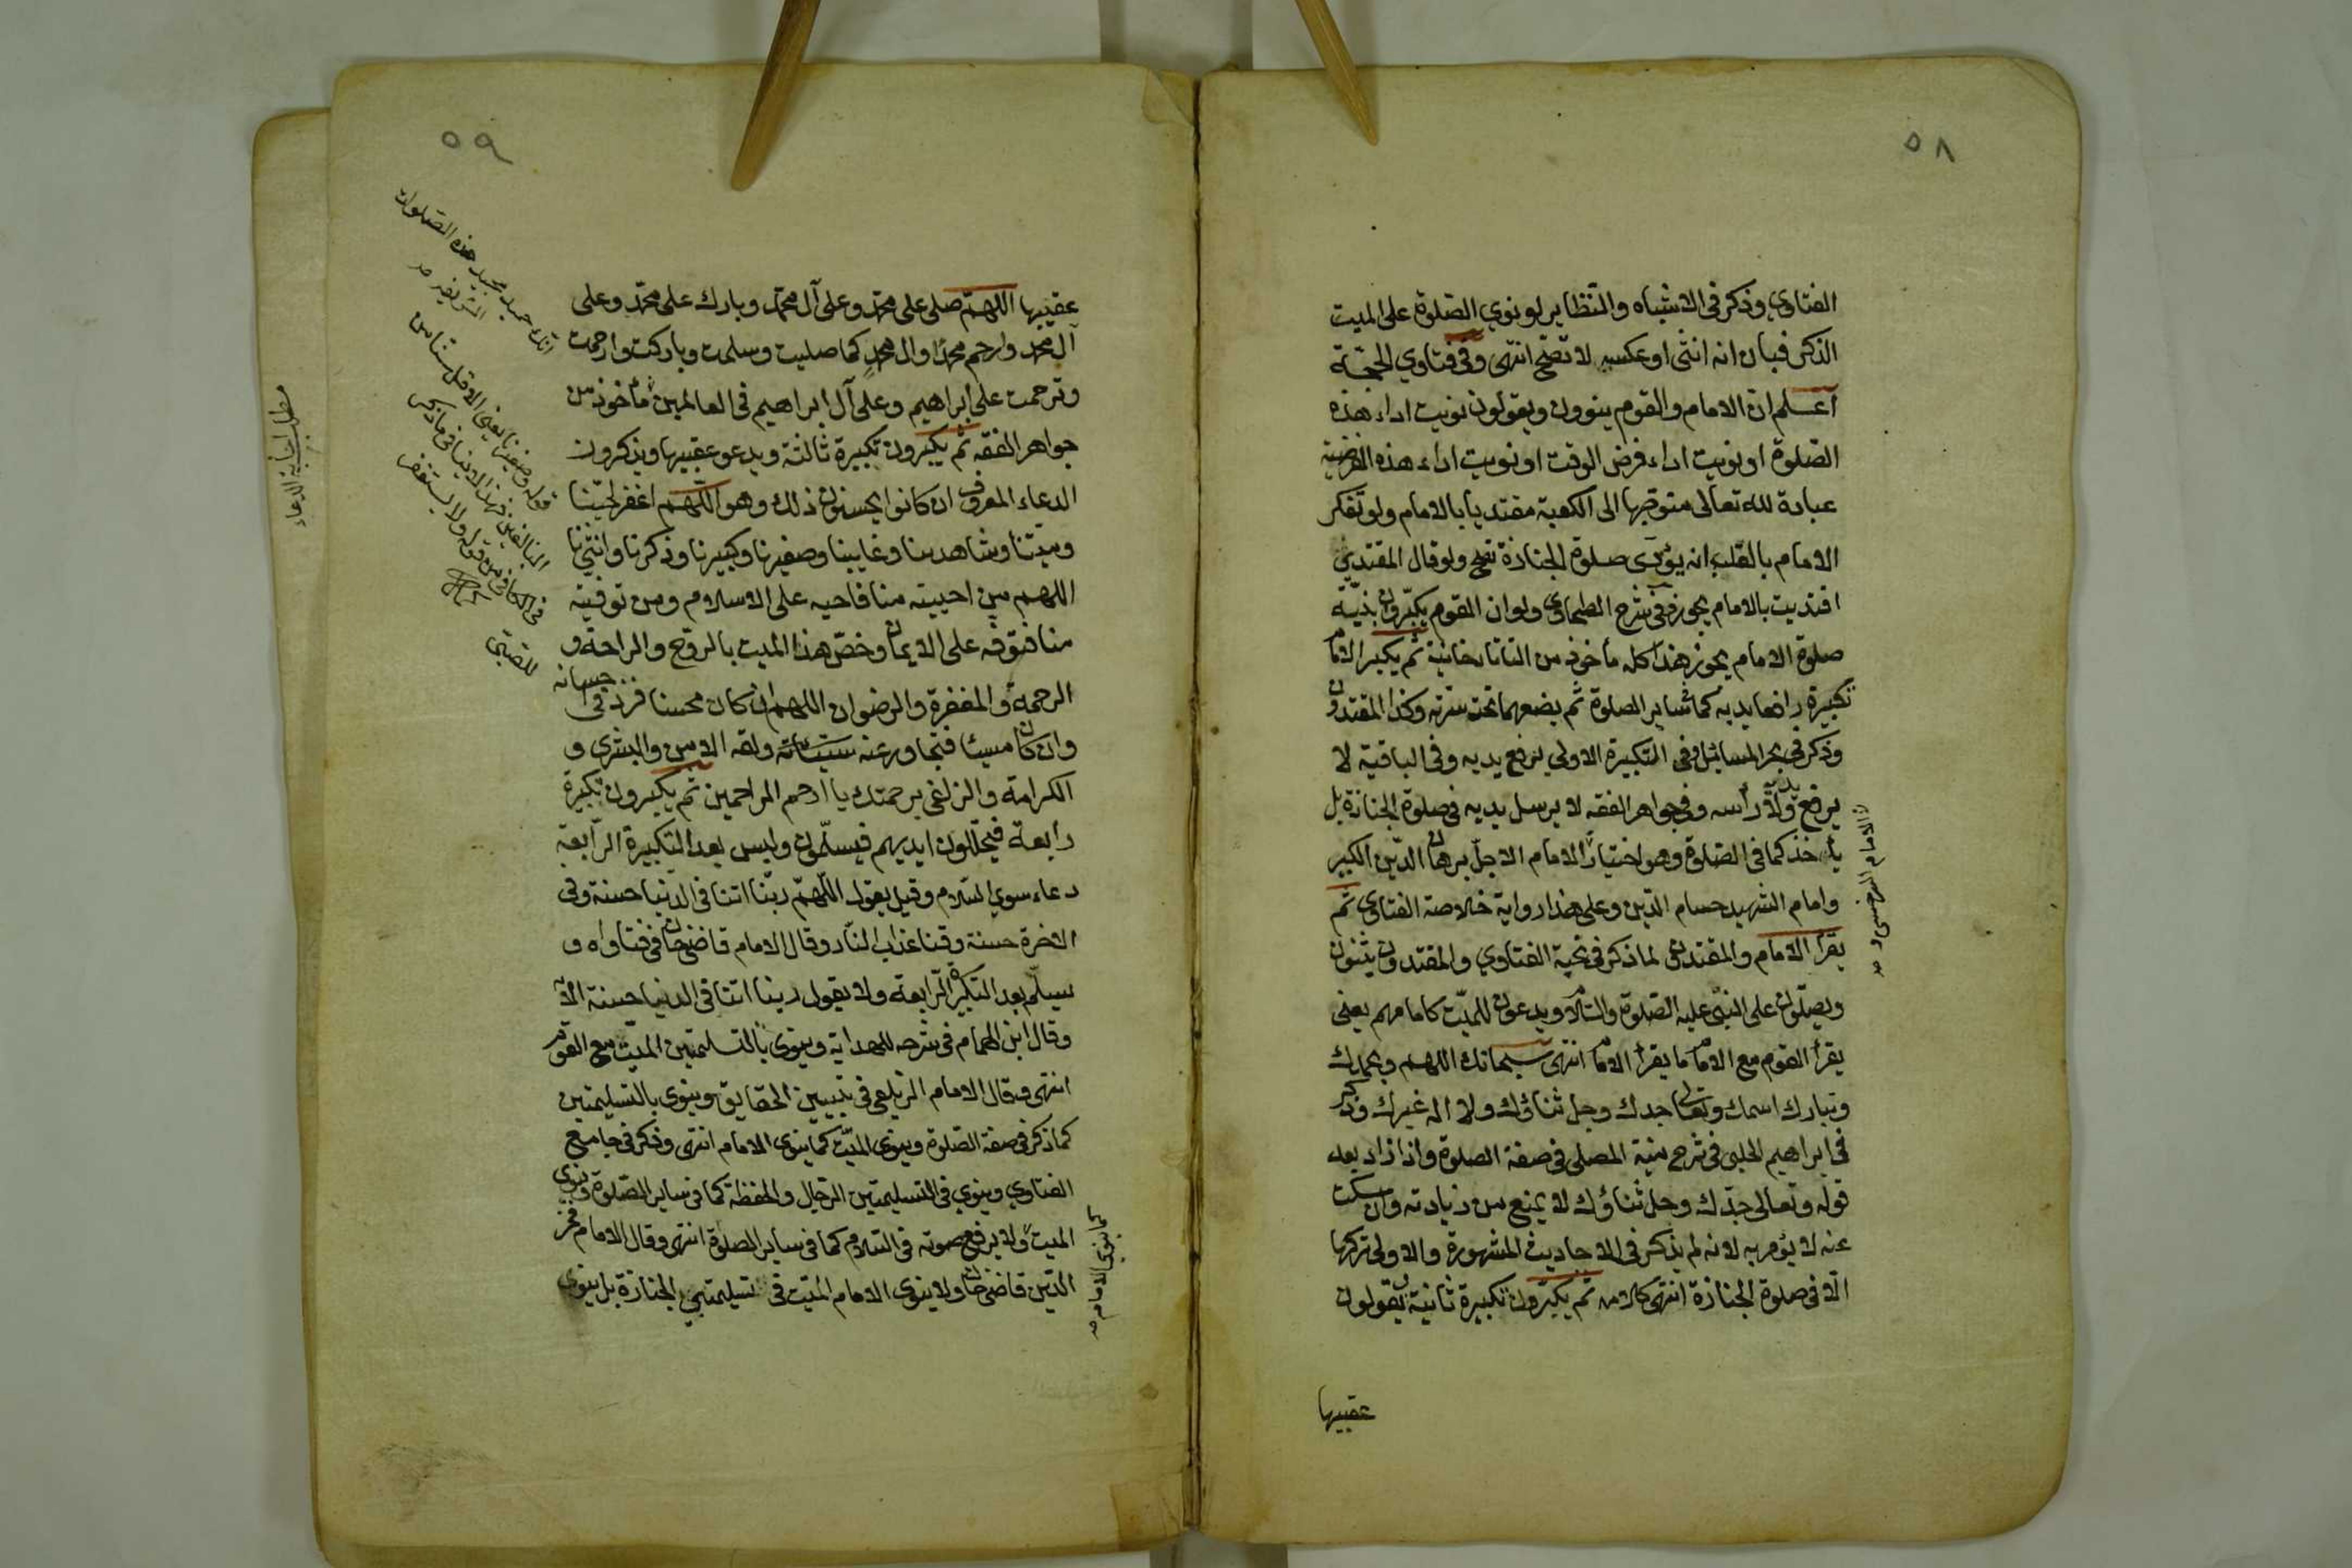 ٥٨
الفتاوي وذكر في الاشباه والنظاير لو نوي الصلوة على الميت
الذكر فبان انه انثى او عكسه لا تصح انتهى وفي فتاوي الحجة
اعلم ان الامام والقوم ينوون ويقولون نويت اداء هذه
الصلوة او نويت اداء فرض الوقت او نويت اداء هذه الفريضة
عبادة لله تعالى متوجها الى الكعبة مقتديا بالامام ولو تفكر
الامام بالقلب انه يؤدى صلوة الجنازة تصح ولو قال المقتدي
اقتديت بالامام يجوز وفي شرح الطحاوي ولو ان القوم يكبرون بنية
صلوة الامام يجوز هذا كله مأخوذ من التاتارخانية ثم يكبر الامام
تكبيرة رافعا يديه كما في ساير الصلوة ثم يضعهما تحت سرته وكذا المقتدون
وذكر في بحر المسائل وفي التكبيرة الاولي يرفع يديه وفي الباقية لا
يرفع يديه ولا رأسه وفي جواهر الفقه لا يرسل يديه في صلوة الجنازة بل
يأخذ كما في الصلوة وهو اختيار الامام الاجل برهان الدين الكبير
وامام الشهيد حسام الدين وعلى هذا رواية خلاصة الفتاوي ثم
يقرأ الامام والمقتدى لما ذكر في تحية الفتاوي والمقتدون يثنون
ويصلون على النبي عليه الصلوة والسلام ويدعون للميت كامامهم يعني
يقرأ القوم مع الامام ما يقرأ الامام انتهى سبحانك اللهم وبحمدك
وتبارك اسمك وتعالى جدك وجل ثناؤك ولا اله غيرك وذكر
في ابراهيم الحلبي في شرح منية المصلي في صفة الصلوة واذا زاد بعد
قوله وتعالى جدك وجل ثناؤك لا يمنع من زيادته وان سكت
عنه لا يؤمر به لانه لم يذكر في الاحاديث المشهورة والاولى تركها
الا في صلوة الجنازة انتهى كلامه ثم يكبرون تكبيرة ثانية يقولون
عقيبها
الامام السرخسي و صح
٥٩
عقيبها اللهم صلى على محمد وعلى آل محمد وبارك على محمد وعلى
آل محمد وارحم محمدا وال محمد كما صليت وسلمت وباركت وارحمت
وترحمت على ابراهيم وعلى آل ابراهيم في العالمين مأخوذ من
جواهر الفقه ثم يكبرون تكبيرة ثالثة ويدعو عقيبها ويذكرون
الدعاء المعروف ان كانوا يحسنون ذلك وهو اللهم اغفر لحينا
وميتنا وشاهدنا وغايبنا وصغيرنا وكبيرنا وذكرنا وانثينا
اللهم من احييته منا فاحيه على الاسلام ومن توفيته
منا فتوفه على الايمان وخص هذا الميت بالروح والراحة و
الرحمة والمغفرة والرضوان اللهم ان كان محسنا فزد في حسانه
وان كان مسيئا فتجاوز عنه سيئاته ولقه الامن والبشرى و
الكرامة والزلفى برحمتك يا ارحم الراحمين ثم يكبرون تكبيرة
رابعة فيحللون ايديهم فيسلمون وليس بعد التكبيرة الرابعة
دعاء سوي السلام وقيل يقول اللهم ربنا اتنا في الدنيا حسنة وفي
الاخرة حسنة وقنا عذاب النار وقال الامام قاضيخان في فتاواه و
يسلم بعد التكبيرة الرابعة ولا يقول ربنا اتنا في الدنيا حسنة الآية
وقال ابن الهمام في شرحه للهداية وينوى بالتسليمتين الميت مع القوم
انتهى وقال الامام الزيلعي في تبيين الحقايق وينوى بالتسليمتين
كما ذكر في صفة الصلوة وينوى الميت كما ينوى الامام انتهى وذكر في جامع
الفتاوي وينوي في التسليمتين الرجال والحفظة كما في ساير الصلوة وينوي
الميت ولا يرفع صوته في السلام كما في ساير الصلوة انتهى وقال الامام فخر
الدين قاضيخان ولا ينوى الامام الميت في تسليمتي الجنازة بل ينوى
كما ينوي الامام صح
انك حميد مجيد هذه الصلوات
قوله وصغيرنا يعني
للصبي